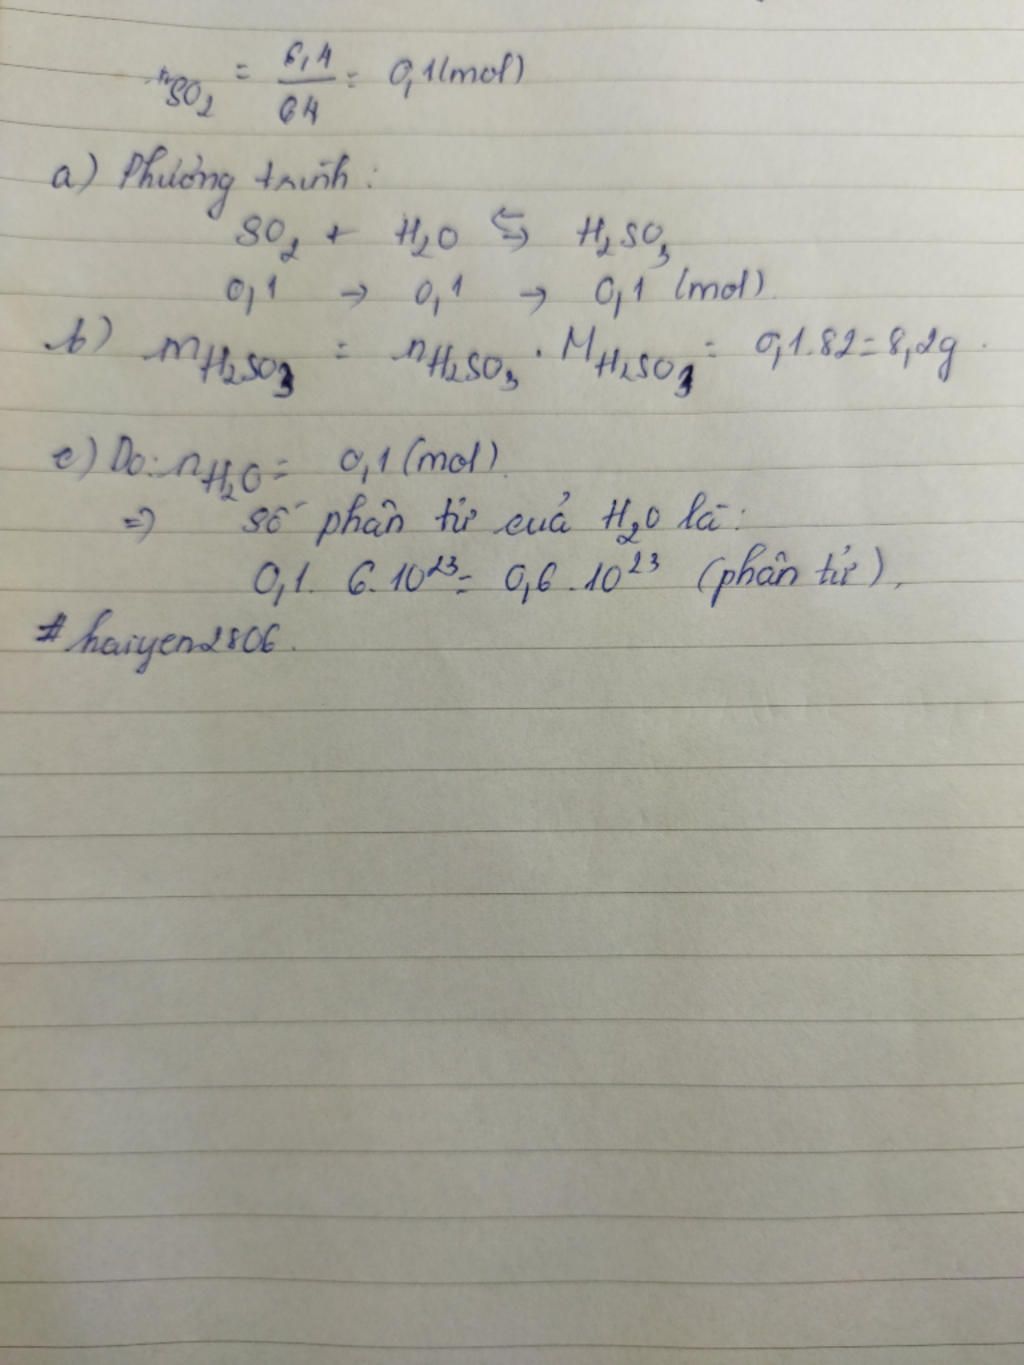 nSO₂ = 6,4/64 = 0,1(mol)
a) Phương trình:
SO₂ + H₂O ⇆ H₂SO₃
0,1 → 0,1 → 0,1 (mol)
b) mH₂SO₃ = nH₂SO₃ . MH₂SO₃ = 0,1.82=8,2g.
c) Do: nH₂O = 0,1(mol).
=> số phân tử của H₂O là:
0,1. 6.10²³= 0,6.10²³ (phân tử).
#haiyen2806.